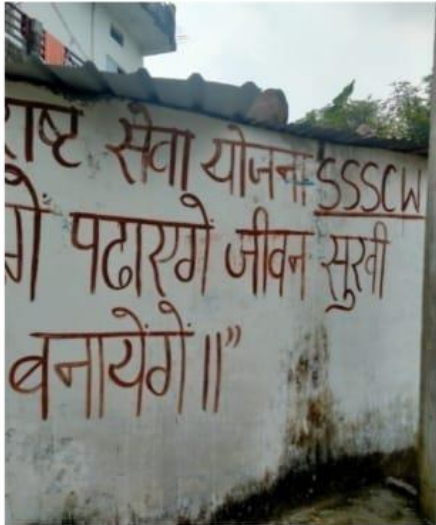 राष्ट सेवा योजना SSSCW
गें पढाएगें जीवन सुखी
बनायेंगें॥”